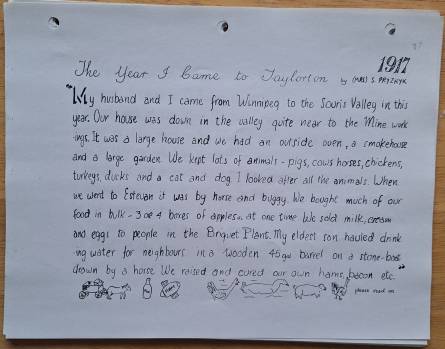 1917
The Year I Came to Taylorton by (MRS) S. PRYZNYK
"My husband and I came from Winnipeg to the Souris Valley in this
year. Our house was down in the valley quite near to the Mine work
-ings. It was a large house and we had an outside oven, a smokehouse
and a large garden. We kept lots of animals - pigs, cows horses, chickens,
turkeys, ducks and a cat and dog. I looked after all the animals. When
we went to Estevan it was by horse and buggy. We bought much of our
food in bulk - 3 or 4 boxes of apples at one time. We sold milk, cream
and eggs to people in the Briquet Plant. My eldest son hauled drink
-ing water for neighbours in a wooden 45 gal barrel on a stone-boat
drawn by a horse. We raised and cured our own hams, bacon etc."
please read on